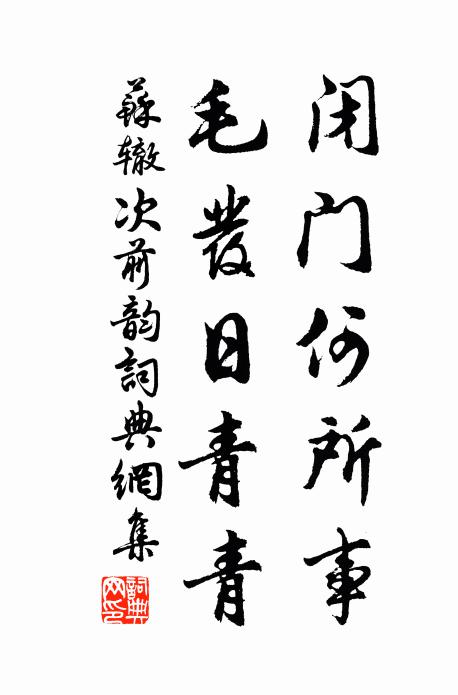 闭门何所事
毛發日青青
蘇辙次前韵詞典網集
詞典网印